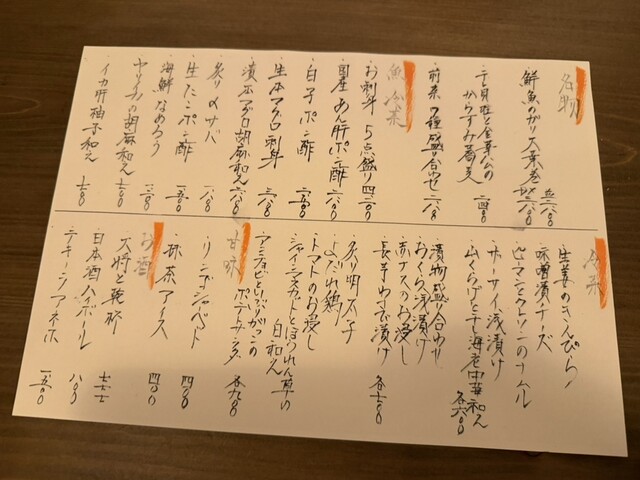 名物
鮮魚のガリ大葉巻
干貝柱と金華ハムの
からすみ蕎麦 二四〇〇
前菜7種盛り合わせ 二八〇〇
魚冷菜
お刺身5点盛り 四二〇〇
国産あん肝ポン酢 二八〇〇
白子ポン酢
生本マグロ刺身
漬本マグロ胡麻和え
炙り〆サバ 一八〇〇
生たこポン酢 一五〇〇
海鮮なめろう
ヤリイカの胡麻和え
イカ肝柚子和え
冷菜
生姜のきんぴら
味噌漬チーズ
ピーマンとクラゲのナムル
ザーサイ浅漬け
山くらげと干海老中華和え
各六〇〇
漬物盛り合わせ
おくら浅漬け
赤ナスのお浸し
長芋わさび漬け
各七〇〇
炙り明太子
よだれ鶏
トマトのお浸し
シャインマスカットとほうれん草の
白和え
アンチョビといぶりがっこの
ポテトサラダ
各九〇〇
甘味
リンゴシャーベット 四〇〇
抹茶アイス 四〇〇
お酒
大将と乾杯 七七七
日本酒ハイボール 八〇〇
テキーラアネホ 一五〇〇